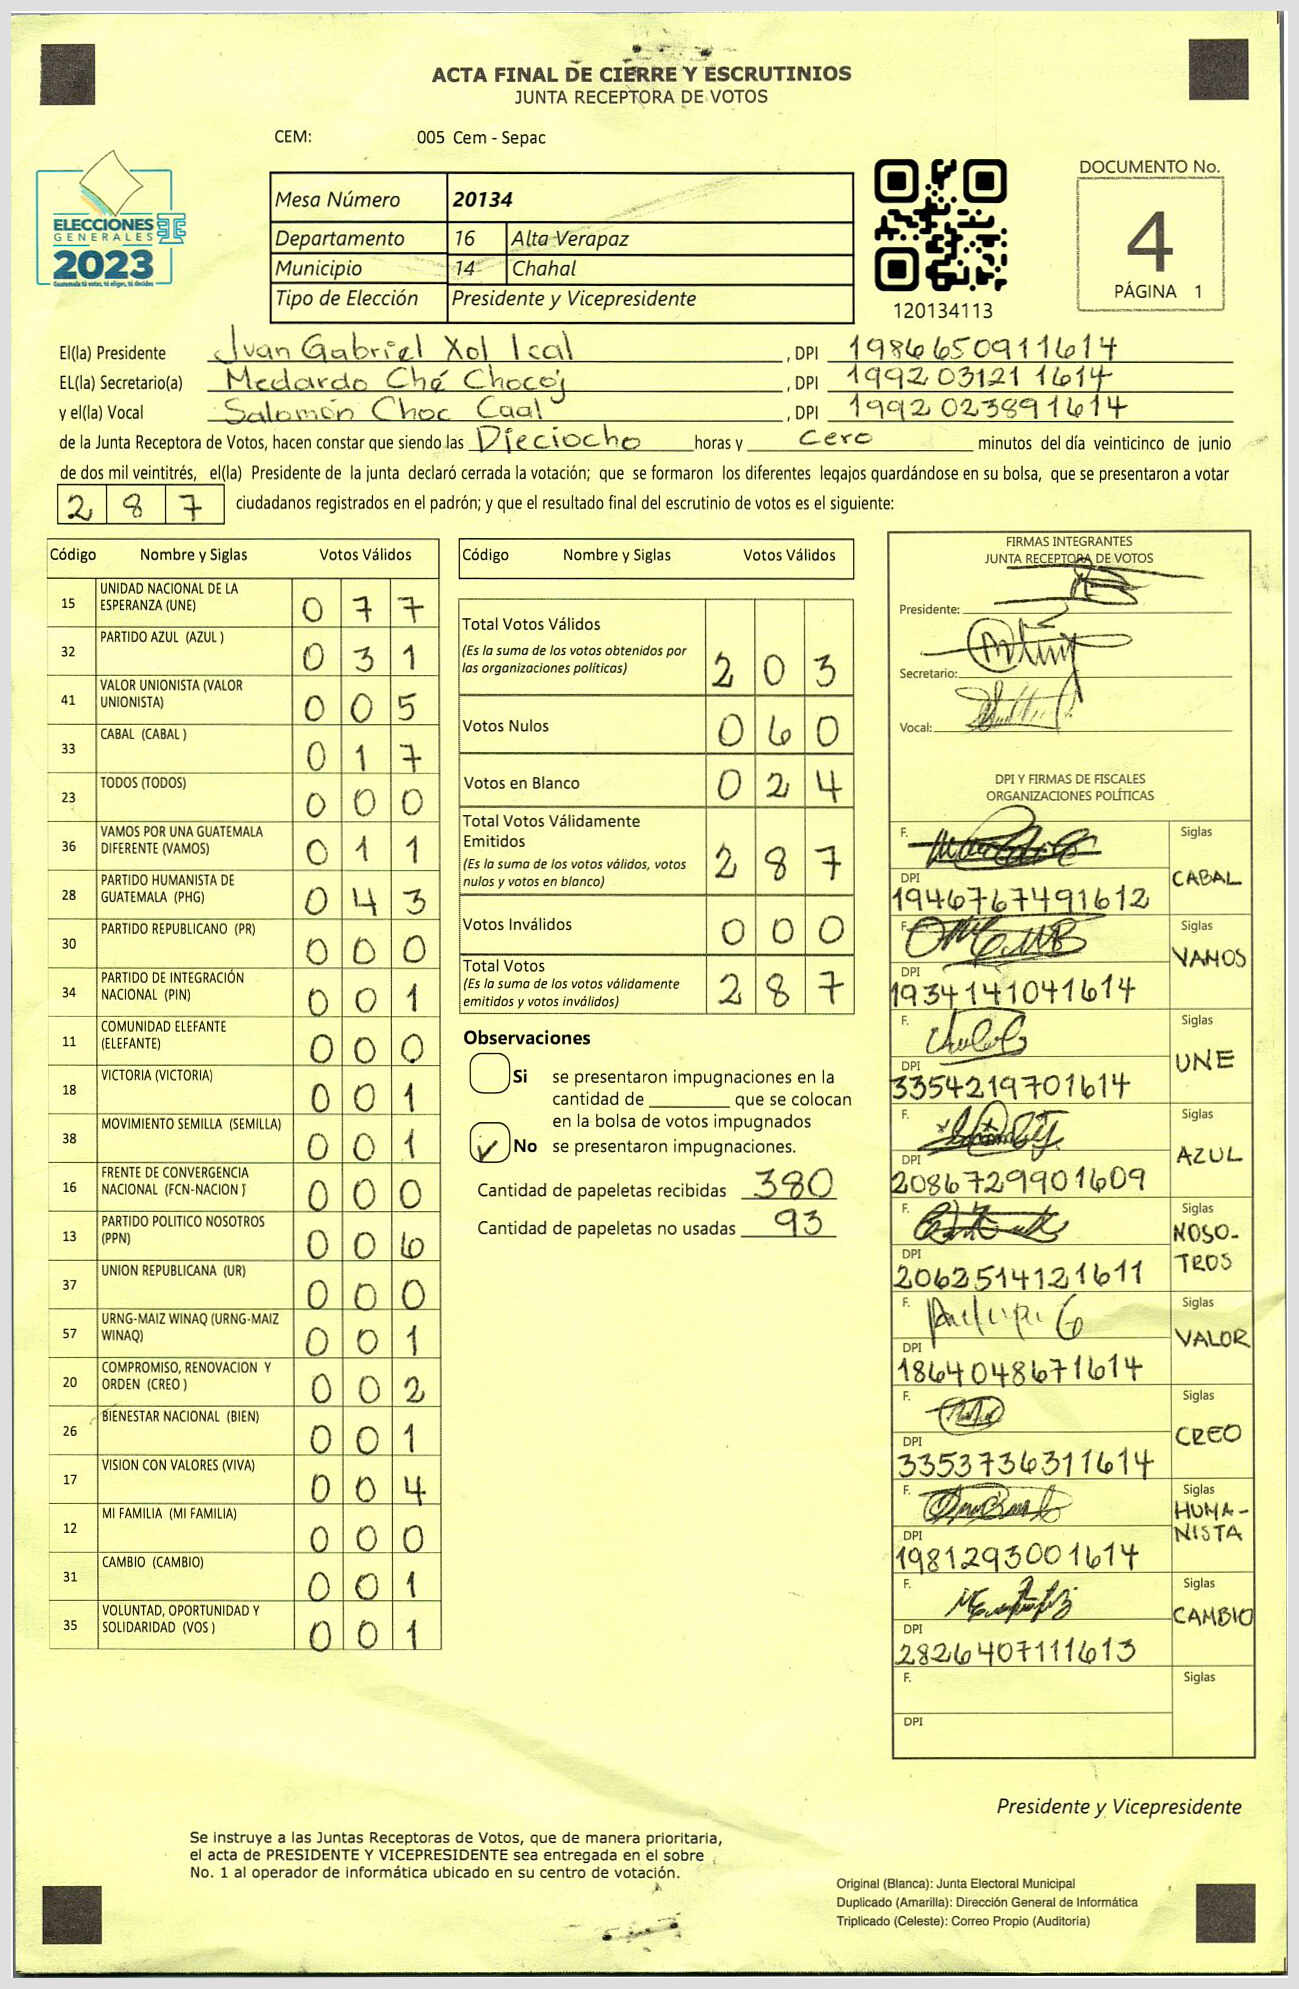 ACTA FINAL DE CIERRE Y ESCRUTINIOS
JUNTA RECEPTORA DE VOTOS
CEM: 005 Cem - Sepac
ELECCIONES
GENERALES
2023
Guatemala tú votas, tú eliges, tú decides
Mesa Número 20134
Departamento 16 Alta Verapaz
Municipio 14 Chahal
Tipo de Elección Presidente y Vicepresidente
120134113
DOCUMENTO No.
4
PÁGINA 1
El(la) Presidente Juan Gabriel Xol Ical , DPI 1986650911614
EL(la) Secretario(a) Medardo Ché Chocoj , DPI 1992031211614
y el(la) Vocal Salomón Choc Caal , DPI 1992023891614
de la Junta Receptora de Votos, hacen constar que siendo las Dieciocho horas y cero minutos del día veinticinco de junio
de dos mil veintitrés, el(la) Presidente de la junta declaró cerrada la votación; que se formaron los diferentes legajos guardándose en su bolsa, que se presentaron a votar
287 ciudadanos registrados en el padrón; y que el resultado final del escrutinio de votos es el siguiente:
Código Nombre y Siglas Votos Válidos
15 UNIDAD NACIONAL DE LA ESPERANZA (UNE) 077
32 PARTIDO AZUL (AZUL ) 031
41 VALOR UNIONISTA (VALOR UNIONISTA) 005
33 CABAL (CABAL ) 017
23 TODOS (TODOS) 000
36 VAMOS POR UNA GUATEMALA DIFERENTE (VAMOS) 011
28 PARTIDO HUMANISTA DE GUATEMALA (PHG) 043
30 PARTIDO REPUBLICANO (PR) 000
34 PARTIDO DE INTEGRACIÓN NACIONAL (PIN) 001
11 COMUNIDAD ELEFANTE (ELEFANTE) 000
18 VICTORIA (VICTORIA) 001
38 MOVIMIENTO SEMILLA (SEMILLA) 001
16 FRENTE DE CONVERGENCIA NACIONAL (FCN-NACION ) 000
13 PARTIDO POLITICO NOSOTROS (PPN) 006
37 UNION REPUBLICANA (UR) 000
57 URNG-MAIZ WINAQ (URNG-MAIZ WINAQ) 001
20 COMPROMISO, RENOVACION Y ORDEN (CREO ) 002
26 BIENESTAR NACIONAL (BIEN) 001
17 VISION CON VALORES (VIVA) 004
12 MI FAMILIA (MI FAMILIA) 000
31 CAMBIO (CAMBIO) 001
35 VOLUNTAD, OPORTUNIDAD Y SOLIDARIDAD (VOS ) 001
Código Nombre y Siglas Votos Válidos
Total Votos Válidos
(Es la suma de los votos obtenidos por
las organizaciones políticas) 203
Votos Nulos 060
Votos en Blanco 024
Total Votos Válidamente
Emitidos
(Es la suma de los votos válidos, votos
nulos y votos en blanco) 287
Votos Inválidos 000
Total Votos
(Es la suma de los votos válidamente
emitidos y votos inválidos) 287
Observaciones
Si se presentaron impugnaciones en la
cantidad de ________ que se colocan
en la bolsa de votos impugnados
No se presentaron impugnaciones.
Cantidad de papeletas recibidas 380
Cantidad de papeletas no usadas 93
FIRMAS INTEGRANTES
JUNTA RECEPTORA DE VOTOS
Presidente:
Secretario:
Vocal:
DPI Y FIRMAS DE FISCALES
ORGANIZACIONES POLÍTICAS
F. Siglas
DPI CABAL
1946767491612
F. Siglas
VAMOS
DPI
1934141041614
F. Siglas
UNE
DPI
3354219701614
F. Siglas
AZUL
DPI
2086729901609
F. Siglas
NOSO-
TROS
DPI
2062514121611
F. Siglas
VALOR
DPI
1864048671614
F. Siglas
CREO
DPI
3353736311614
F. Siglas
HUMA-
NISTA
DPI
1981293001614
F. Siglas
CAMBIO
DPI
2826407111613
F. Siglas
DPI
Presidente y Vicepresidente
Se instruye a las Juntas Receptoras de Votos, que de manera prioritaria,
el acta de PRESIDENTE Y VICEPRESIDENTE sea entregada en el sobre
No. 1 al operador de informática ubicado en su centro de votación.
Original (Blanca): Junta Electoral Municipal
Duplicado (Amarilla): Dirección General de Informática
Triplicado (Celeste): Correo Propio (Auditoría)